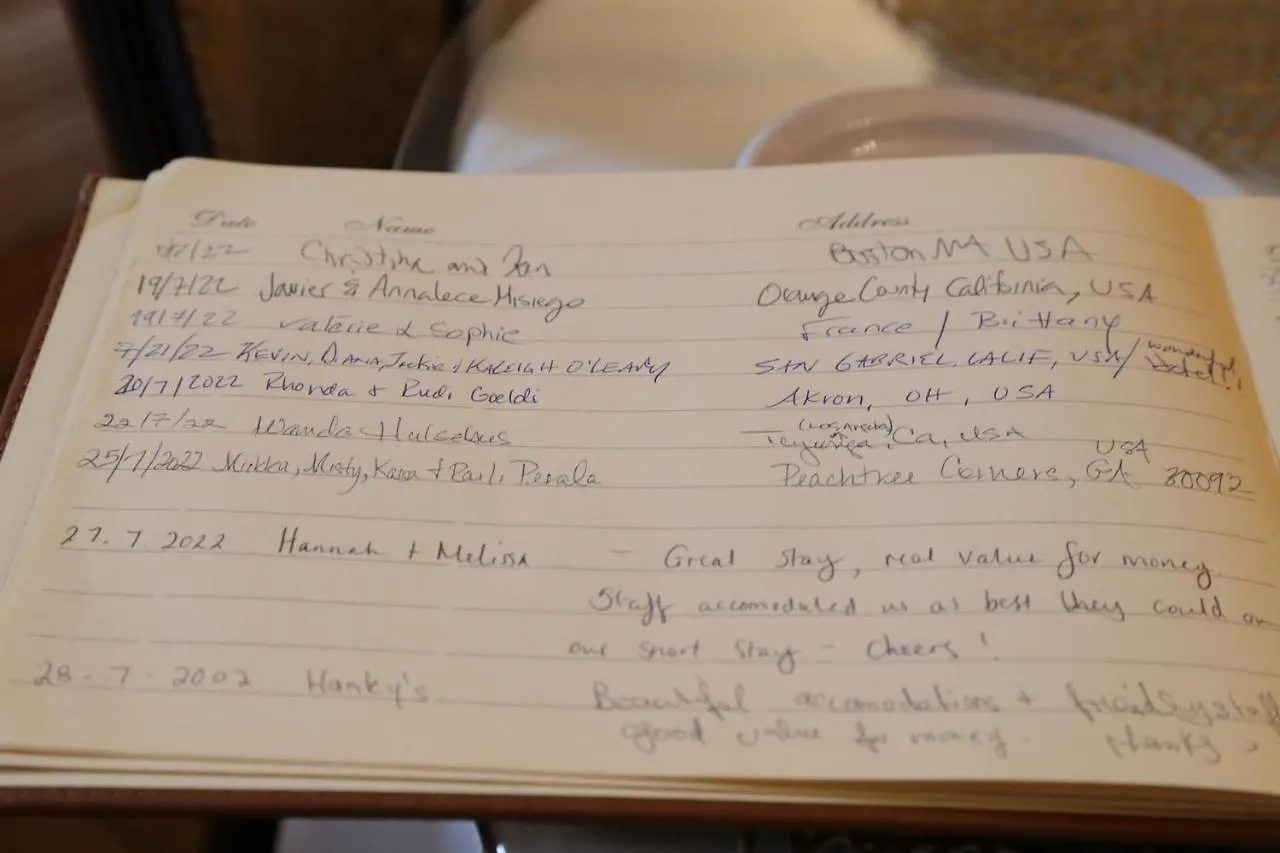 Date Name Address
/7/22 Christine and Boston MA USA
19/7/22 Javier & Annalece Misiego Orange County California, USA
19/7/22 Valérie & Sophie France / Brittany
7/21/22 KEVIN, DIANA, Jackie & KALEIGH O'LEARY SAN GABRIEL, CALIF, USA/ wonderful
20/7/2022 Rhonda & Rudi Goeldi Akron, OH, USA
(Los Angeles)
22/7/22 Wanda Hulsebus Ca, USA
USA
25/7/2022 Miikka, Misty, Kara + Raili Perala Peachtree Corners, GA 30092
27.7.2022 Hannah + Melissa - Great stay, real value for money.
Staff accomodated us as best they could on
our short stay - Cheers!
28-7-2002 Hanky's. Beautiful accomodations + friendly staff
good value for money. thanks